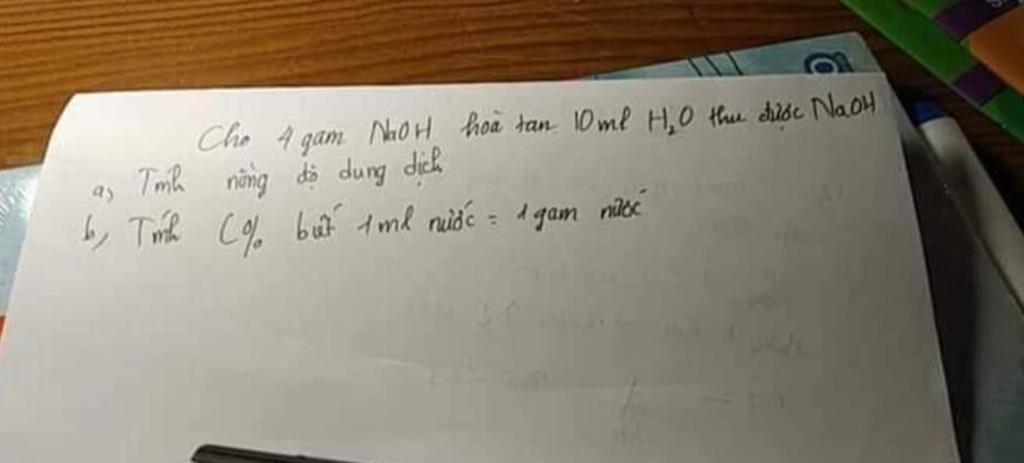 Cho 4 gam NaOH hoà tan 10ml H₂O thu được NaOH
a, Tính nồng độ dung dịch
b, Tính C% biết 1ml nước = 1 gam nước